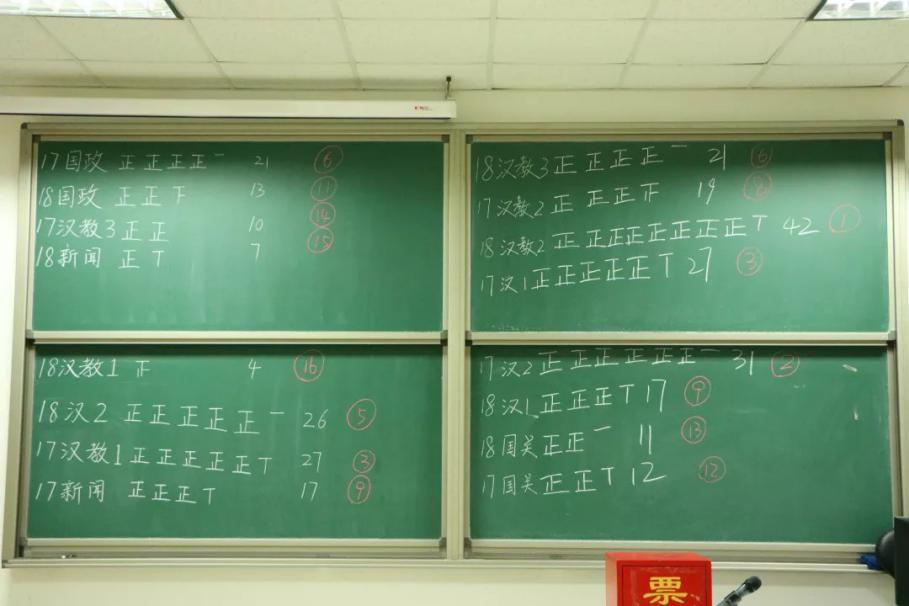 17国政 正正正正一 21 ⑥
18国政 正正下 13 ⑪
17汉教3 正正 10 ⑭
18新闻 正丅 7 ⑮
18汉教1 4 ⑯
18汉2 正正正正正一 26 ⑤
17汉教1 正正正正正丅 27 ③
17新闻 正正正丅 17 ⑨
18汉教3 正正正正一 21 ⑥
17汉教2 正正正 19 ⑧
18汉教2 正正正正正正正正丅 42 ①
17汉1 正正正正正丅 27 ③
17汉2 正正正正正正一 31 ②
18汉1 正正正丅 17 ⑨
18国关 正正一 11 ⑬
17国关 正正丅 12 ⑫
票